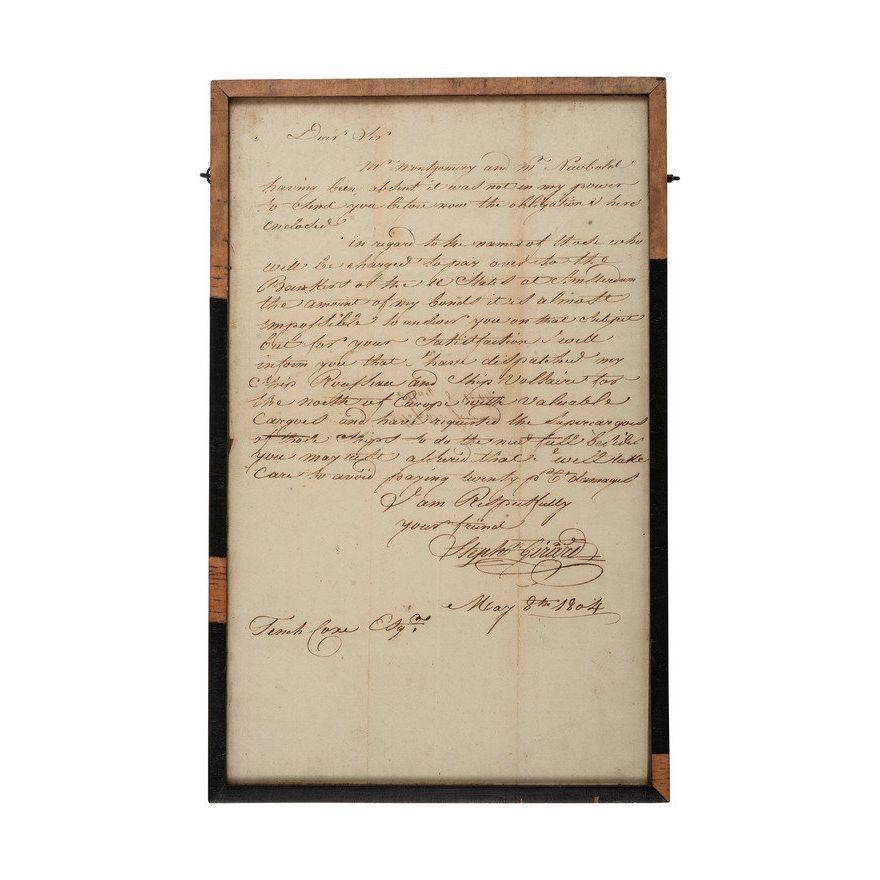 Dear Sir
Mr. Montgomery and Mr. Newbold
having been absent it was not in my power
to Send you before now the obligation is here
enclosed
in regard to the names of those who
will be charged to pay over to the
Bankers of the U States at Amsterdam
the amount of my bonds it is almost
impossible to answer you on that Subject
but for your Satisfaction I will
inform you that I have dispatched my
Ship Rousseau and Ship Voltaire for
the north of Europe with valuable
Cargoes and have requested the Supercargoes
of those Ships to do the needfull besides
you may rest assured that I will take
Care to avoid paying twenty pr. Ct. damages
I am Respectfully
your friend
Stephn. Girard
May 8th 1804
Tench Coxe Esqre.